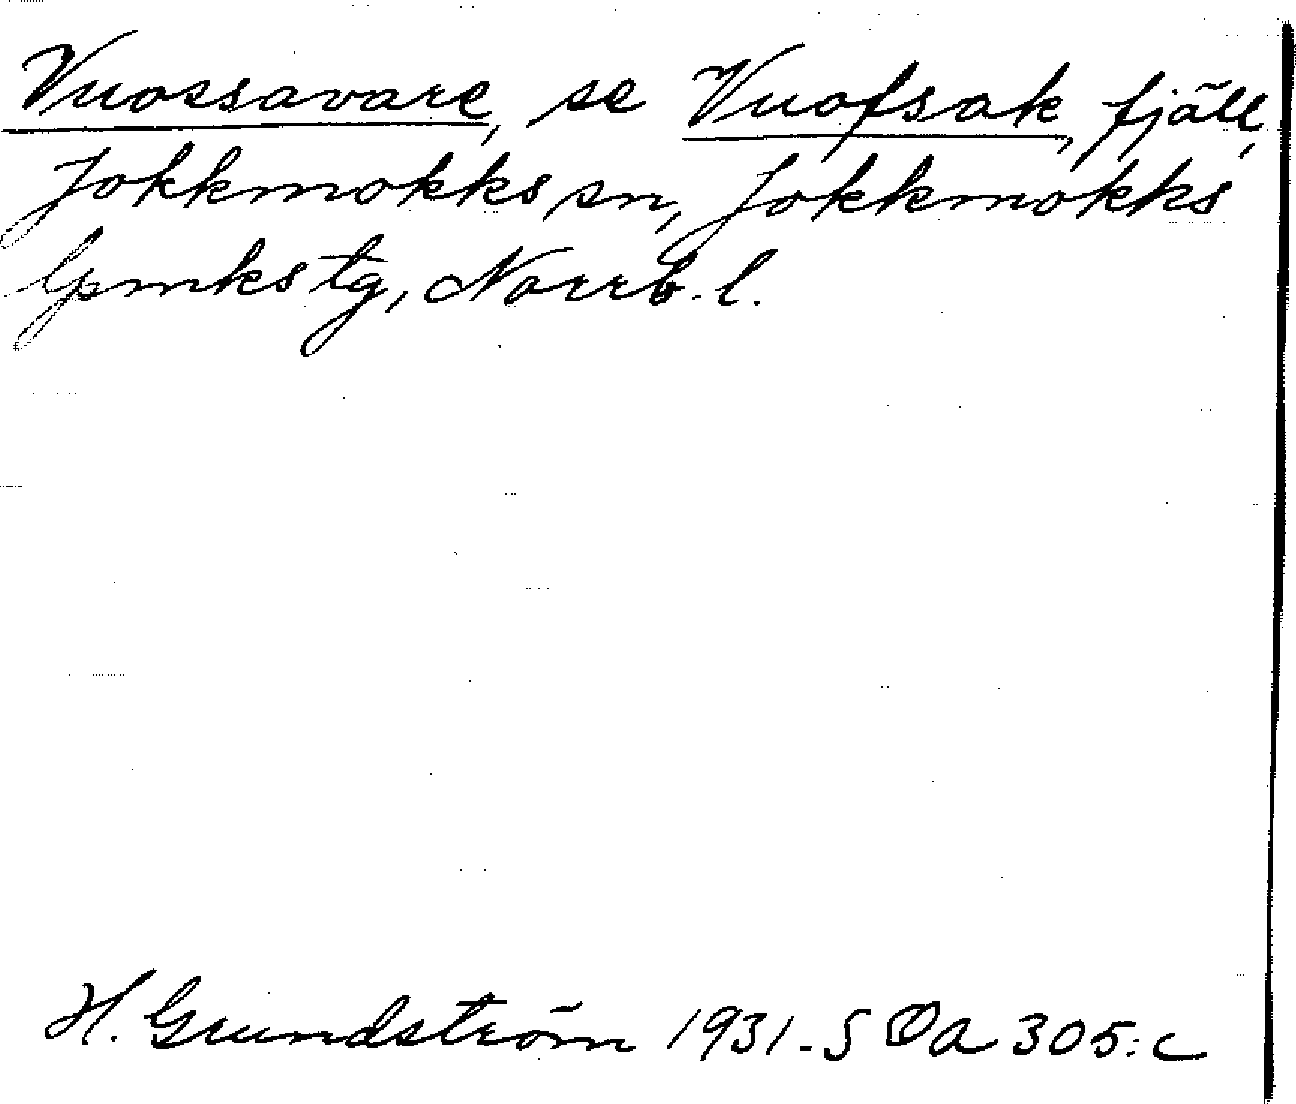 Vuossavare, se Vuoſsak, fjäll,
Jokkmokks sn, Jokkmokks
lpmks tg, Norrb. l.
H. Grundström 1931. SOA 305:c